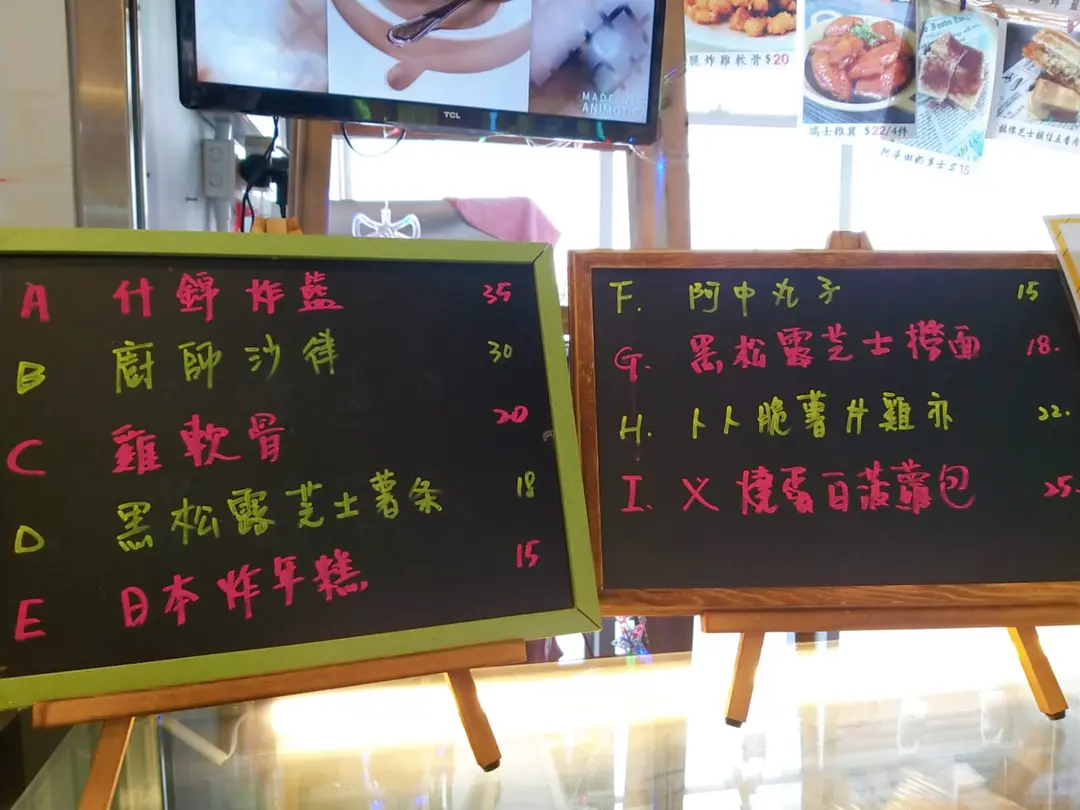 MADE WITH
ANIMOTICA
TCL
脆炸雞軟骨$20
瑞士雞翼 $22/4件
阿華田奶多士 $15
A 什錦炸藍 35
B 廚師沙律 30
C 雞軟骨 20
D 黑松露芝士薯条 18
E 日本炸年糕 15
F. 阿中丸子 15
G. 黑松露芝士撈面 18.
H. 卜卜脆薯片雞亦 22.
I. 乂燒蛋百菠蘿包 25.